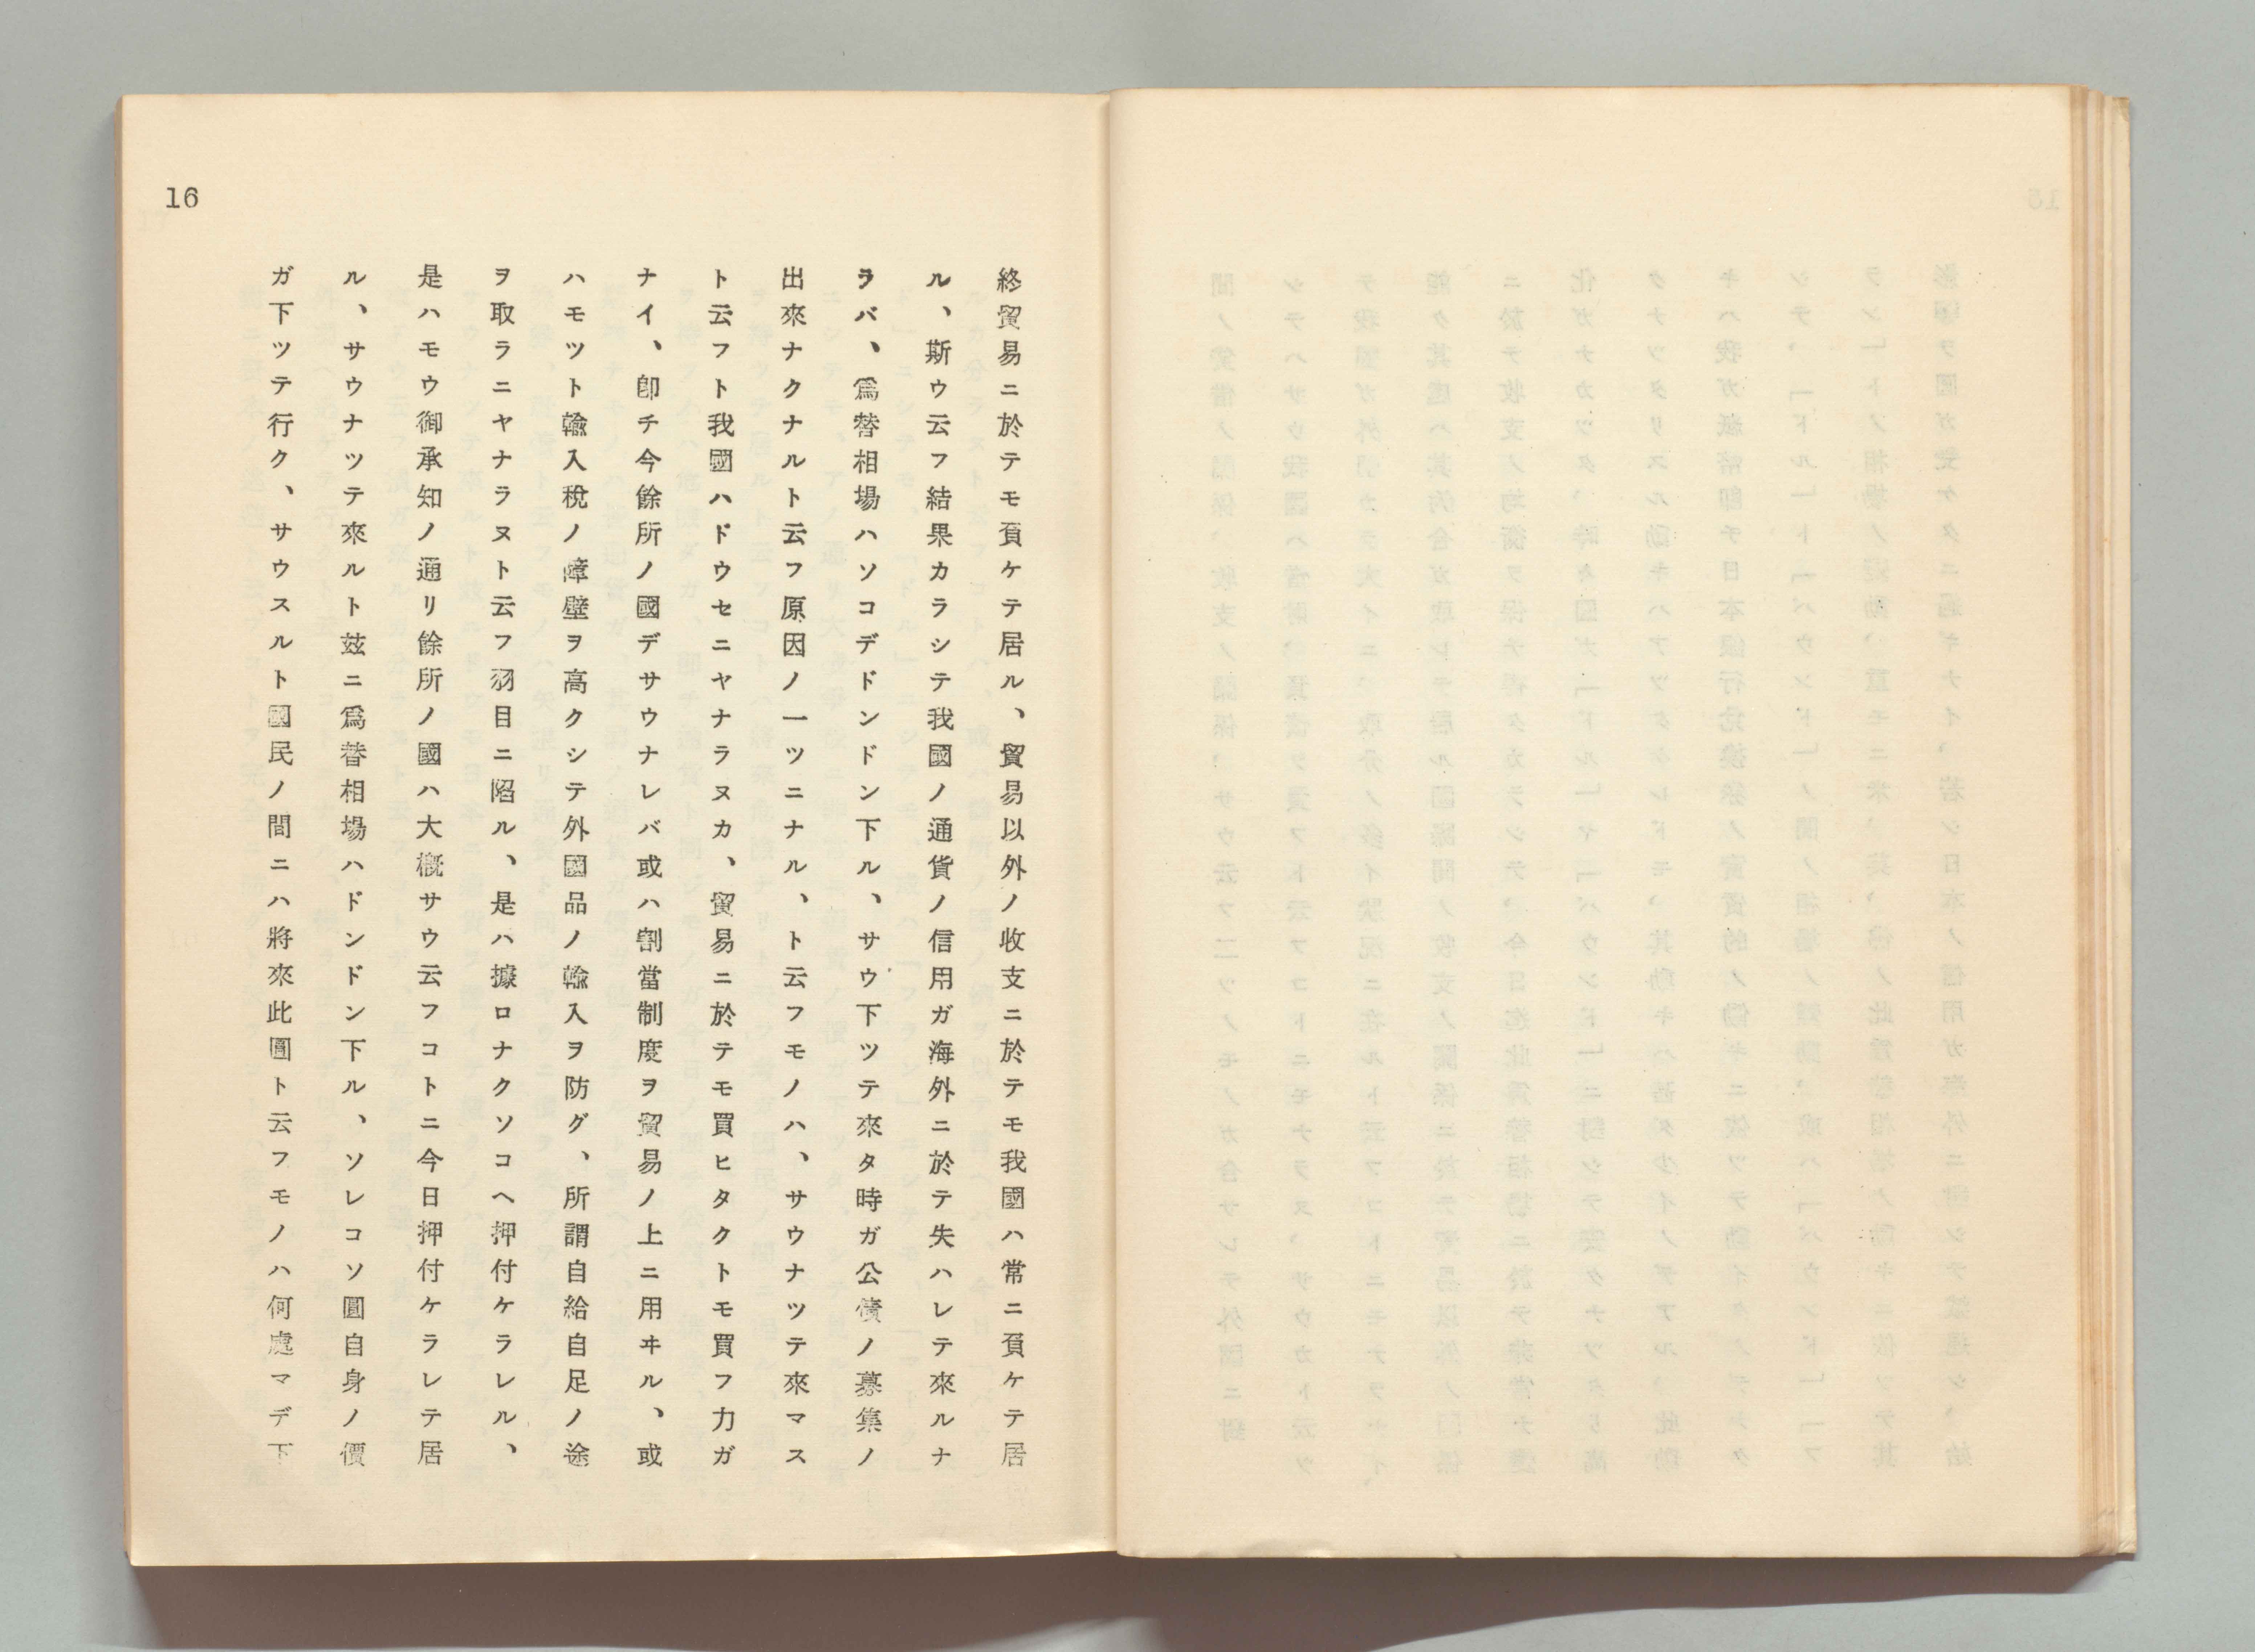 16
終貿易ニ於テモ負ケテ居ル、貿易以外ノ收支ニ於テモ我國ハ常ニ負ケテ居
ル、斯ウ云フ結果カラシテ我國ノ通貨ノ信用ガ海外ニ於テ失ハレテ來ルナ
ラバ、爲替相場ハソコデドンドン下ル、サウ下ツテ來タ時ガ公債ノ募集ノ
出來ナクナルト云フ原因ノ一ツニナル、ト云フモノハ、サウナツテ來マス
ト云フト我國ハドウセニヤナラヌカ、貿易ニ於テモ買ヒタクトモ買フ力ガ
ナイ、卽チ今餘所ノ國デサウナレバ或ハ割當制度ヲ貿易ノ上ニ用ヰル、或
ハモツト輸入稅ノ障壁ヲ高クシテ外國品ノ輸入ヲ防グ、所謂自給自足ノ途
ヲ取ラニヤナラヌト云フ羽目ニ陷ル、是ハ據ロナクソコヘ押付ケラレル、
是ハモウ御承知ノ通リ餘所ノ國ハ大槪サウ云フコトニ今日押付ケラレテ居
ル、サウナツテ來ルト玆ニ爲替相場ハドンドン下ル、ソレコソ圓自身ノ價
ガ下ツテ行ク、サウスルト國民ノ間ニハ將來此圓ト云フモノハ何處マデ下